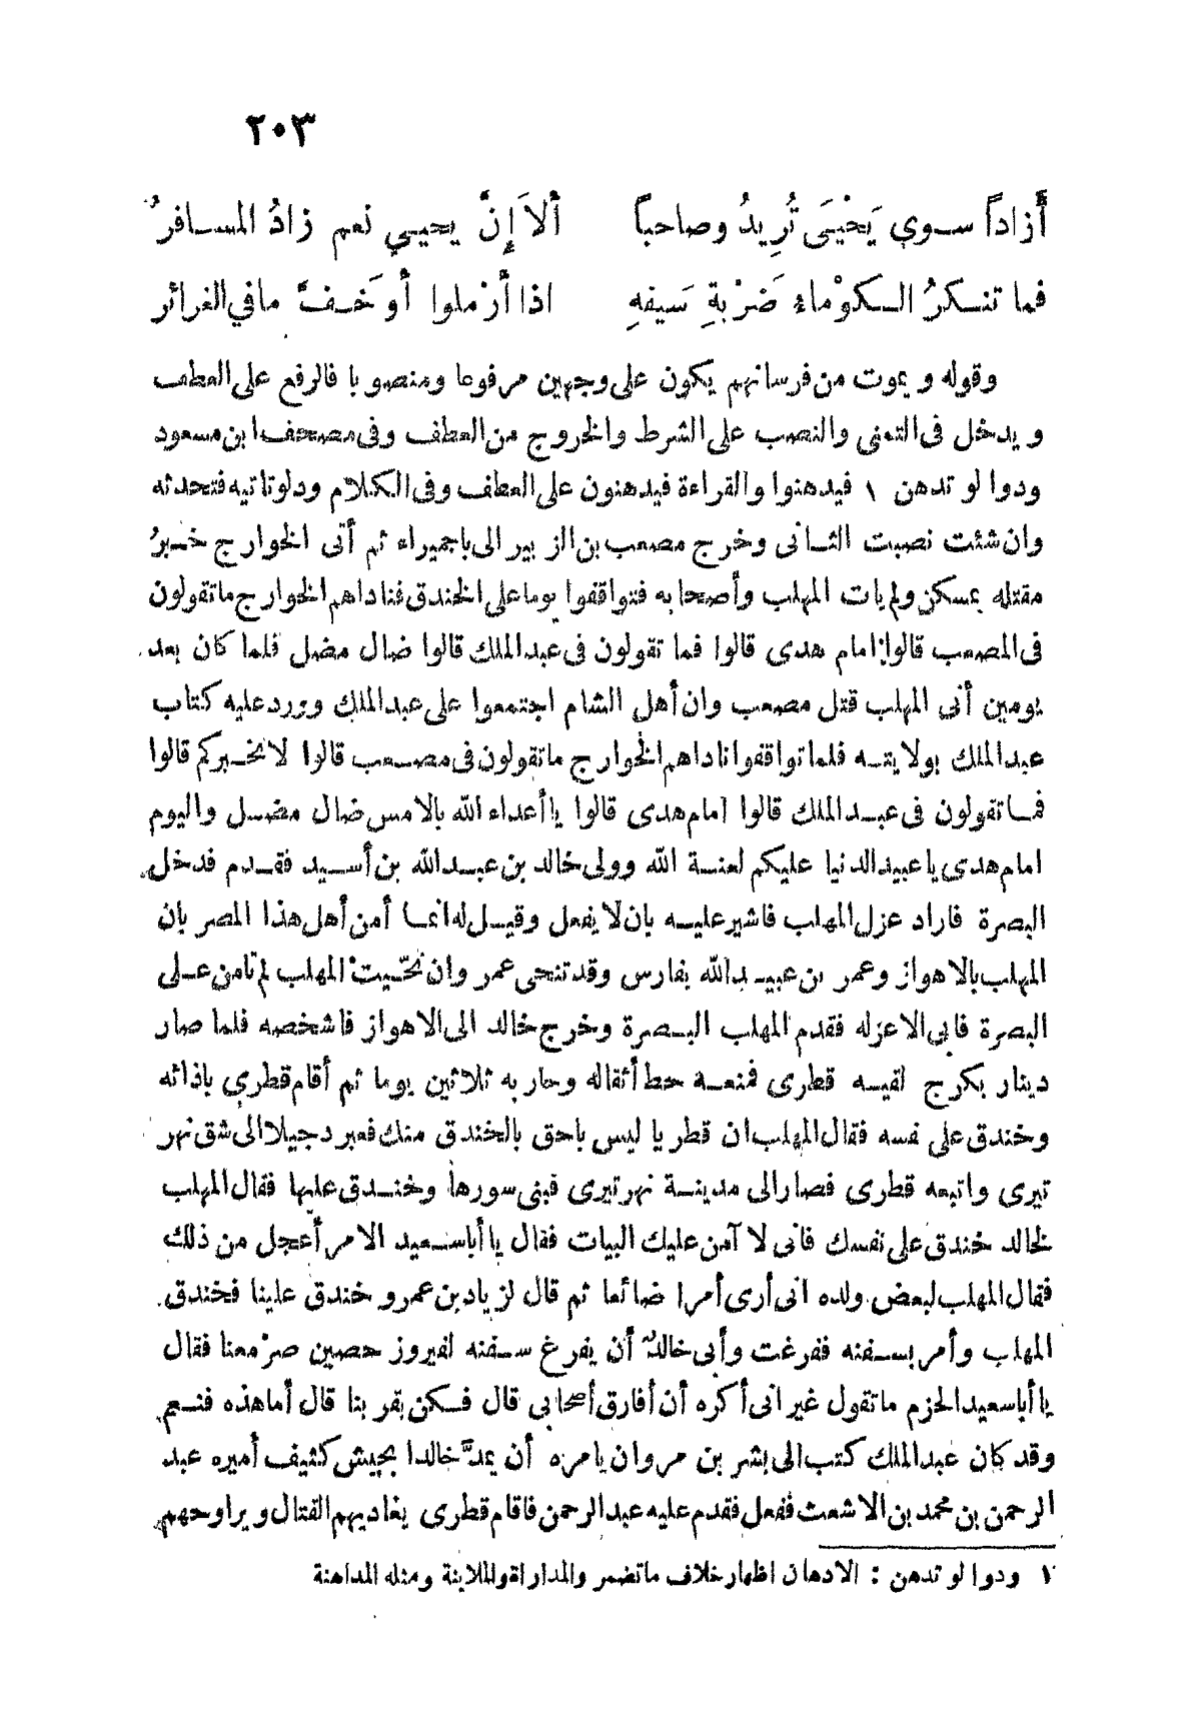 ٢٠٣
أَزاداً سـوي يَحْيَى تُرِيدُ وصاحباً ألاَ إِنَّ يحيـي نعم زادُ المسـافرُ
فما تنـكرُ الـكوْماءُ ضَرْبةِ سَيفهِ اذا أرْملوا أوخَـفَّ مافي الغرائر
وقوله ويموت من فرسانهم يكون على وجهين مرفوعا ومنصوبا فالرفع على العطف
ويدخل فى التمنى والنصب على الشرط والخروج من العطف وفى مصحف ابن مسعود
ودوا لو تدهن ١ فيدهنوا والقراءة فيدهنون على العطف وفى الكلام ودلوتاتيه فتحدثه
وان شئت نصبت الثـانى وخرج مصعب بن الزبير الى باجميراء ثم أتى الخوارج خـبرُ
مقتله بمسكن ولم يات المهلب وأصحابه فتواقفوا يوما على الخندق فناداهم الخوارج ماتقولون
فى المصعب قالوا امام هدى قالوا فما تقولون فى عبد الملك قالوا ضال مضل فلما كان بعد
يومين أتى المهلب قتل مصعب وان أهل الشام اجتمعوا على عبد الملك وورد عليه كتاب
عبد الملك بولايتـه فلما تواقفوا ناداهم الخوارج ماتقولون فى مصـعب قالوا لا نخـبركم قالوا
فمـا تقولون فى عبـد الملك قالوا امام هدى قالوا يا أعداء الله بالامس ضال مضـل واليوم
امام هدى ياعبيد الدنيا عليكم لعنـة الله وولى خالد بن عبـد الله بن أسـيد فقـدم فدخل
البصرة فاراد عزل المهلب فاشير عليـه بان لا يفعل وقيـل له انمـا أمن أهل هذا المصر بان
المهلب بالاهواز وعمر بن عبيـد الله بفارس وقد تنحى عمر وان نحّيت المهلب لم تامن عـلى
البصرة فابى الا عزله فقدم المهلب البـصرة وخرج خالد الى الاهواز فاشخصه فلما صار
دينار بكرج لقيـه قطرى فمنعـه حط أثقاله وحاربه ثلاثين يوما ثم أقام قطرى باذائه
وخندق على نفسه فقال المهلب ان قطريا ليس باحق بالخندق منك فعبر دجيلا الى شق نهر
تيرى واتبعه قطرى فصار الى مدينـة نهرتيرى فبنى سورها وخنـدق عليها فقال المهلب
لخالد خندق على نفسك فانى لا آمن عليك البيات فقال يا أباسـعيد الامر أعجل من ذلك
فقال المهلب لبعض ولده انى أرى أمرا ضائعا ثم قال لزياد بن عمرو خندق علينا فخندق
المهلب وأمر بسـفنه ففرغت وأبى خالدٌ أن يفرغ سـفنه لفيروز حصين صرْ معنا فقال
يا أباسعيد الحزم ماتقول غير انى أكره أن أفارق أصحابى قال فـكن بقربنا قال أما هذه فنـعم
وقد كان عبد الملك كتب الى بشر بن مروان يامره أن يمدَّ خالدا بجيش كثيف أميره عبد
الرحمن بن محمد بن الاشعث ففعل فقدم عليه عبد الرحمن فاقام قطرى يغاديهم القتال ويراوحهم
١ ودوا لو تدهن : الادهان اظهار خلاف ماتضمر والمداراة والملاينة ومثله المداهنة